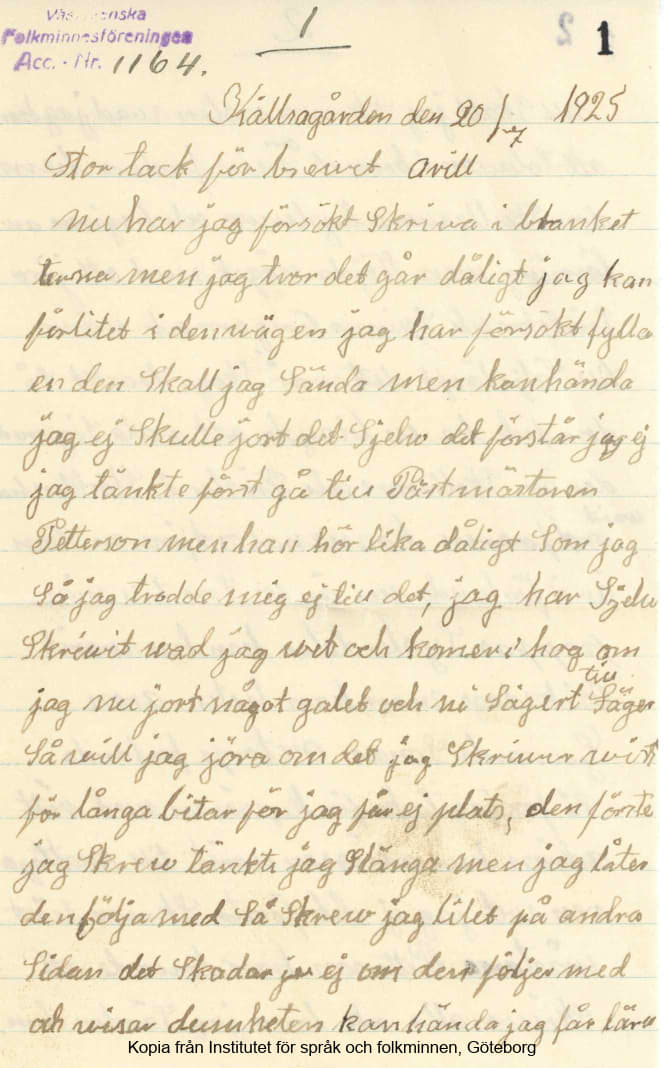 Västsvenska
Folkminnesföreningen
Acc. - Nr. 1164.
1
1
Källsagården den 20/7 1925
Stor tack för brewet Avill
nu har jag försökt Skriva i blanket
terna men jag tror det går dåligt jag kan
förlitet i den wägen jag har försökt fylla
en den Skall jag Sända men kanhända
jag ej Skulle jort det Sjelw det förstår jag ej
jag tänkte först gå till Postmästaren
Petterson men han hör lika dåligt Som jag
Så jag trodde mig ej till det, jag har Sjelw
Skriwit wad jag wet och komer i hog om
jag nu jort något galet och ni Sägert till Säger
Så will jag jöra om det jag Skriwer wist
för långa bitar för jag får ej plats, den förste
jag Skrew tänkte jag Slänga men jag låter
den följa med Så Skrew jag litet på andra
Sidan det Skadar ju ej om den följer med
och wisar dumheten kanhända jag får lära
Kopia från Institutet för språk och folkminnen, Göteborg